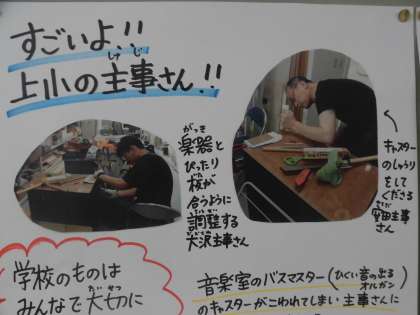 すごいよ!!
上小の主事さん!!
けじ
楽器と
がっき
ぴったり
板が
合うように
調整する
大沢主事さん
キャスター
のしゅうり
をして
くださる
主事
さん
学校のものは
みんなで大切に
たいせつ
音楽室のバスマスター(ひくい音の出る
オルガン)
のキャスターがこわれてしまい主事さんに